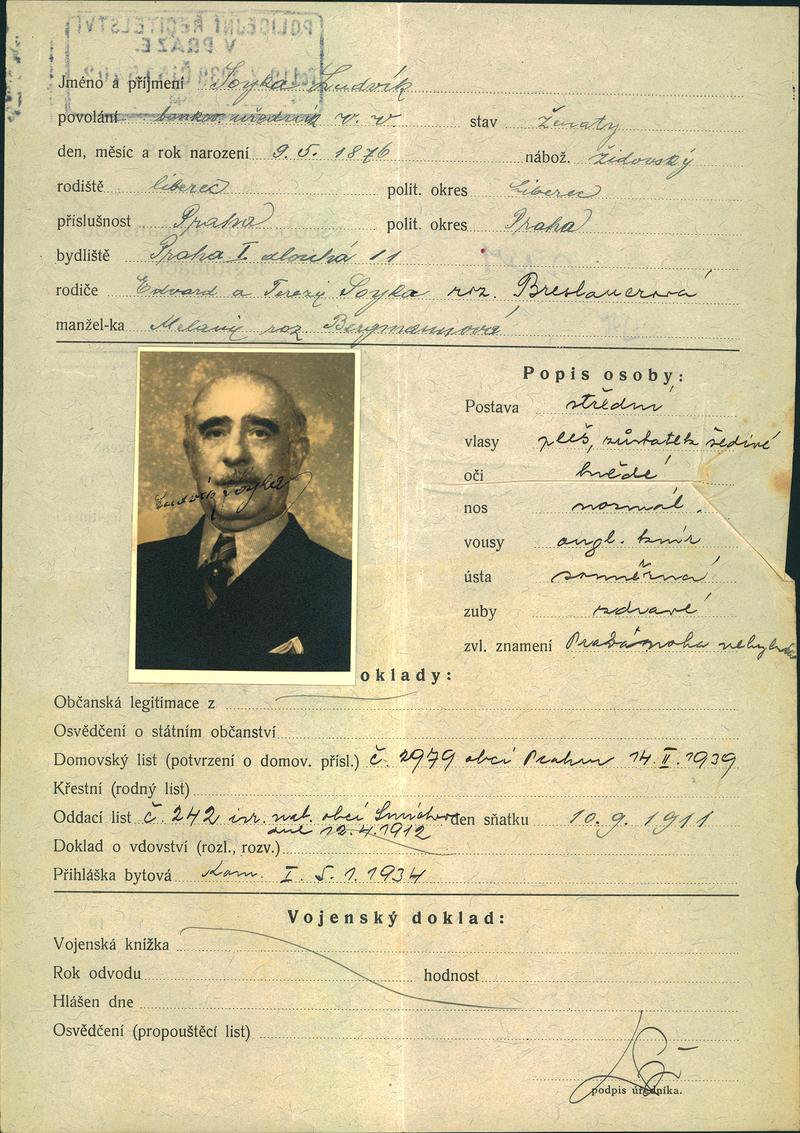 POLICEJNÍ ŘEDITELSTVÍ
V PRAZE.
Jméno a příjmení Soyka Ludvík
povolání bankov. úředník v. v. stav ženatý
den, měsíc a rok narození 9. 5. 1876 nábož. židovský
rodiště Liberec polit. okres Liberec
příslušnost Praha polit. okres Praha
bydliště Praha I. Dlouhá 11
rodiče Edvard a Terezy Soyka roz. Breslauerová
manžel-ka Melany roz. Bergmannová
Popis osoby:
Postava střední
vlasy pleš, zůstatek šedivé
oči hnědé
nos normál.
vousy angl. knír
ústa souměrná
zuby zdravé
zvl. znamení Pravá noha
Ludvík Soyka
oklady:
Občanská legitimace z
Osvědčení o státním občanství
Domovský list (potvrzení o domov. přísl.) č. 2979 obcí Prahou 14. II. 1939
Křestní (rodný list)
Oddací list č. 242 isr. nab. obcí Smíchov den sňatku 10. 9. 1911
dne 12. 4. 1912
Doklad o vdovství (rozl., rozv.)
Přihláška bytová Kom. I. 5. 1. 1934
Vojenský doklad:
Vojenská knížka
Rok odvodu hodnost
Hlášen dne
Osvědčení (propouštěcí list)
podpis úředníka.